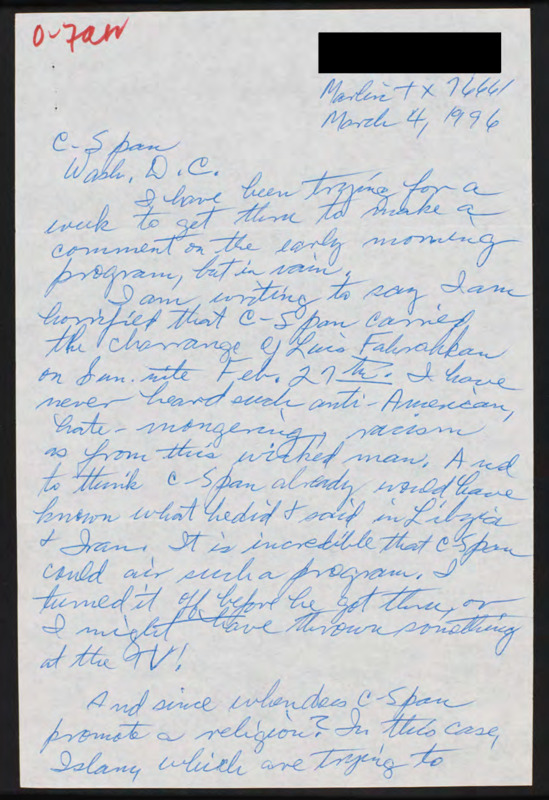 0-7am
Marlin TX 76661
March 4, 1996
C-Span
Wash, D.C.
I have been trying for a
week to get thru to make a
comment on the early morning
program, but in vain.
I am writing to say I am
horrified that C-Span carried
the
of Luis Fahrahkan
on Sun. nite Feb. 27th. I have
never heard such anti-American,
hate-mongering, racism
as from this wicked man. And
to think C-Span already would have
known what he did & said in Libya
& Iran. It is incredible that C-Span
could air such a program. I
turned it off before he got thru, or
I might have thrown something
at the TV!
And since when does C-Span
promote a religion? In this case,
Islam, which are trying to